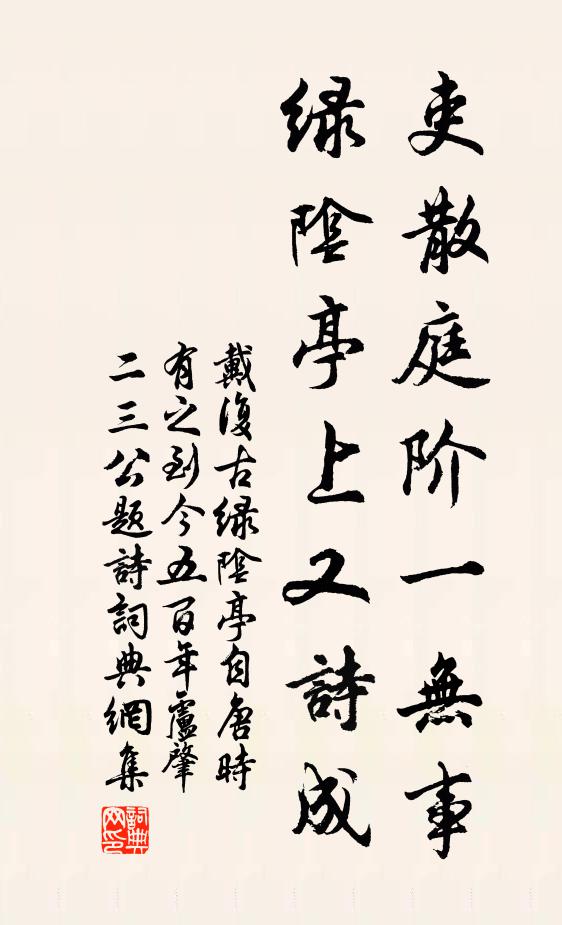 吏散庭阶一無事
绿陰亭上又詩成
戴復古绿陰亭自唐時
有之到今五百年盧肇
二三公題詩詞典網集
詞典網印